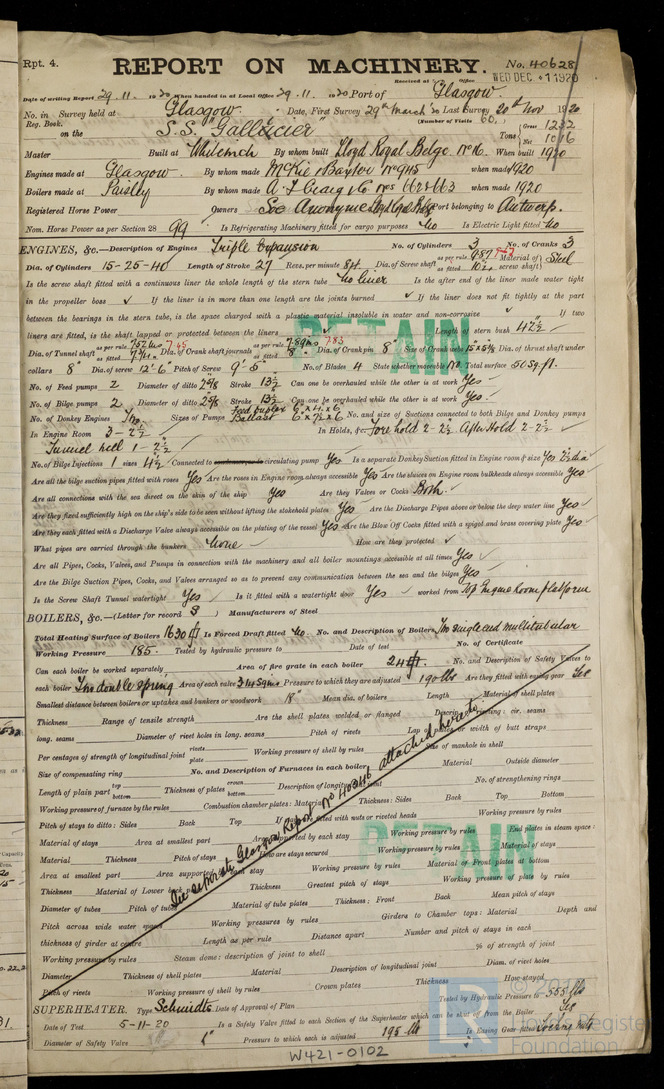 Rpt. 4. REPORT ON MACHINERY. No. 40628
Received at Office WED DEC. 1 1920
Date of writing Report 29.11. 1920 When handed in at Local Office 29.11. 1920 Port of Glasgow.
No. in Survey held at Glasgow. Date, First Survey 29th March 20 Last Survey 20th Nov 1920
Reg. Book. (Number of Visits 60.)
on the S.S. "Gallicier" Tons Gross 1232 Net 1016
Master Built at Whiteinch By whom built Lloyd Royal Belge No 16. When built 1920
Engines made at Glasgow. By whom made McKie & Baxter No 945 when made 1920
Boilers made at Paisley By whom made A. F. Craig & Co Nos 662 & 663 when made 1920
Registered Horse Power Owners Soc Anonyme Lloyd Royal Belge Port belonging to Antwerp.
Nom. Horse Power as per Section 28 99 Is Refrigerating Machinery fitted for cargo purposes No Is Electric Light fitted No
ENGINES, &c.—Description of Engines Triple Expansion No. of Cylinders 3 No. of Cranks 3
Dia. of Cylinders 15-25-40 Length of Stroke 27 Revs. per minute 84 Dia. of Screw shaft as per rule 9.87 as fitted 10 1/4 Material of screw shaft Steel
Is the screw shaft fitted with a continuous liner the whole length of the stern tube No liner Is the after end of the liner made water tight
in the propeller boss ✓ If the liner is in more than one length are the joints burned ✓ If the liner does not fit tightly at the part
between the bearings in the stern tube, is the space charged with a plastic material insoluble in water and non-corrosive ✓ If two
liners are fitted, is the shaft lapped or protected between the liners ✓ Length of stern bush 42 1/2
Dia. of Tunnel shaft as per rule 7.45 as fitted Dia. of Crank shaft journals as per rule 7.83 as fitted 8" Dia. of Crank pin 8" Size of Crank webs Dia. of thrust shaft under
collars 8" Dia. of screw 12'-6" Pitch of Screw 9'-5" No. of Blades 4 State whether moveable No Total surface 50 Sq. ft.
No. of Feed pumps 2 Diameter of ditto 2 5/8 Stroke 13 1/2 Can one be overhauled while the other is at work Yes
No. of Bilge pumps 2 Diameter of ditto 2 5/8 Stroke 13 1/2 Can one be overhauled while the other is at work Yes
No. of Donkey Engines Two Sizes of Pumps Feed duplex 6 x 4 x 6 Ballast No. and size of Suctions connected to both Bilge and Donkey pumps
In Engine Room 3 - 2 1/2 In Holds, &c. Fore hold 2 - 2 1/2 After Hold 2 - 2 1/2
Tunnel well 1 - 2 1/2
No. of Bilge Injections 1 sizes 4 1/2 Connected to circulating pump Yes Is a separate Donkey Suction fitted in Engine room & size Yes 2 1/2 dia
Are all the bilge suction pipes fitted with roses Yes Are the roses in Engine room always accessible Yes Are the sluices on Engine room bulkheads always accessible Yes
Are all connections with the sea direct on the skin of the ship Yes Are they Valves or Cocks Both
Are they fixed sufficiently high on the ship's side to be seen without lifting the stokehold plates Yes Are the Discharge Pipes above or below the deep water line Yes
Are they each fitted with a Discharge Valve always accessible on the plating of the vessel Yes Are the Blow Off Cocks fitted with a spigot and brass covering plate Yes
What pipes are carried through the bunkers None How are they protected ✓
Are all Pipes, Cocks, Valves, and Pumps in connection with the machinery and all boiler mountings accessible at all times Yes
Are the Bilge Suction Pipes, Cocks, and Valves arranged so as to prevent any communication between the sea and the bilges Yes
Is the Screw Shaft Tunnel watertight Yes Is it fitted with a watertight door Yes worked from Top Engine Room platform
BOILERS, &c.—(Letter for record S) Manufacturers of Steel
Total Heating Surface of Boilers 1630 Is Forced Draft fitted No. No. and Description of Boilers Two single end multitubular
Working Pressure 185. Tested by hydraulic pressure to Date of test No. of Certificate
Can each boiler be worked separately Area of fire grate in each boiler 24 No. and Description of Safety Valves to
each boiler Two double spring Area of each valve 3.14 sq ins Pressure to which they are adjusted 190 lbs Are they fitted with easing gear Yes
Smallest distance between boilers or uptakes and bunkers or woodwork 18" Mean dia. of boilers Length Material of shell plates
Thickness Range of tensile strength Are the shell plates welded or flanged Descrip. of riveting: cir. seams
long. seams Diameter of rivet holes in long. seams Pitch of rivets Lap of plates or width of butt straps
Per centages of strength of longitudinal joint rivets plate Working pressure of shell by rules Size of manhole in shell
Size of compensating ring No. and Description of Furnaces in each boiler Material Outside diameter
Length of plain part top bottom Thickness of plates crown bottom Description of longitudinal joint No. of strengthening rings
Working pressure of furnace by the rules Combustion chamber plates: Material Thickness: Sides Back Top Bottom
Pitch of stays to ditto: Sides Back Top If stays are fitted with nuts or riveted heads Working pressure by rules
Material of stays Area at smallest part Area supported by each stay Working pressure by rules End plates in steam space:
Material Thickness Pitch of stays How are stays secured Working pressure by rules Material of stays
Area at smallest part Area supported by each stay Working pressure by rules Material of Front plates at bottom
Thickness Material of Lower back plate Thickness Greatest pitch of stays Working pressure of plate by rules
Diameter of tubes Pitch of tubes Material of tube plates Thickness: Front Back Mean pitch of stays
Pitch across wide water spaces Working pressures by rules Girders to Chamber tops: Material Depth and
thickness of girder at centre Length as per rule Distance apart Number and pitch of stays in each
Working pressure by rules Steam dome: description of joint to shell % of strength of joint
Diameter Thickness of shell plates Material Description of longitudinal joint Diam. of rivet holes
Pitch of rivets Working pressure of shell by rules Crown plates Thickness How stayed
See separate Glasgow Report No 40346 attached hereto
RETAIN
RETAIN
SUPERHEATER. Type Schmidts Date of Approval of Plan Tested by Hydraulic Pressure to 555 lbs
Date of Test 5-11-20 Is a Safety Valve fitted to each Section of the Superheater which can be shut off from the Boiler Yes
Diameter of Safety Valve Pressure to which each is adjusted 195 lb Is Easing Gear fitted
W421-0102
Lloyd's Register
Foundation